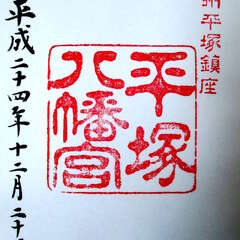 州平塚鎮座
平塚
八幡宮
平成二十四年十二月二十